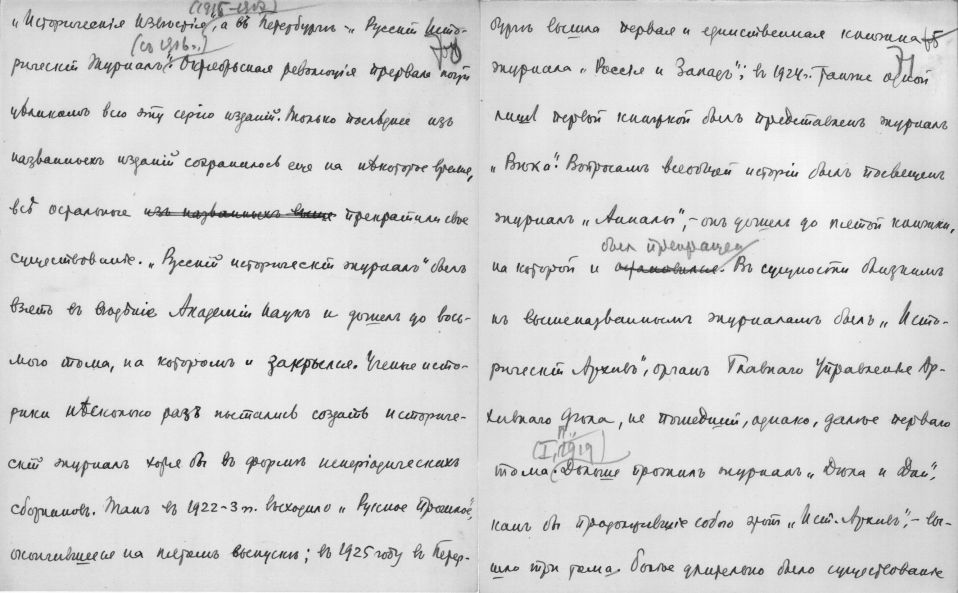 (1916-1917)
„Историческія Извѣстія", а въ Петербургѣ – „Русскій Исто-
(съ 1916 г.)
рическій Журналъ". Октябрьская революція прервала почти
цѣликомъ всю эту серію изданій. Только послѣднее изъ
названныхъ изданій сохранилось еще на нѣкоторое время,
всѣ остальные изъ названныхъ выше прекратили свое
существованіе. „Русскій историческій журналъ" былъ
взятъ въ вѣдѣніе Академіи Наукъ и дошелъ до вось-
мого тома, на которомъ и закрылся. Ученые исто-
рики нѣсколько разъ пытались создать историче-
скій журналъ хотя бы въ формѣ неперіодическихъ
сборниковъ. Такъ въ 1922-3 гг. выходило „Русское Прошлое",
окончившееся на пятомъ выпускѣ; въ 1925 году въ Петер-
бургѣ вышла первая и единственная книжка
журнала „Россія и Западъ"; въ 1924 г. также одной
лишь первой книжкой былъ представленъ журналъ
„Вѣка". Вопросамъ всеобщей исторіи былъ посвященъ
журналъ „Анналы", – онъ дошелъ до пятой книжки,
былъ прекращен
на которой и остановился. Въ сущности близкимъ
къ вышеназваннымъ журналамъ былъ „Исто-
рическій Архивъ", органъ Главнаго Управленія Ар-
хивнаго Дѣла, не пошедшій, однако, далѣе перваго
(I, 1919)
тома. Дольше прожилъ журналъ „Дѣла и Дни",
какъ бы продолжившіе собою этотъ „Ист. Архивъ", – вы-
шло три тома. Болѣе длительно было существованіе